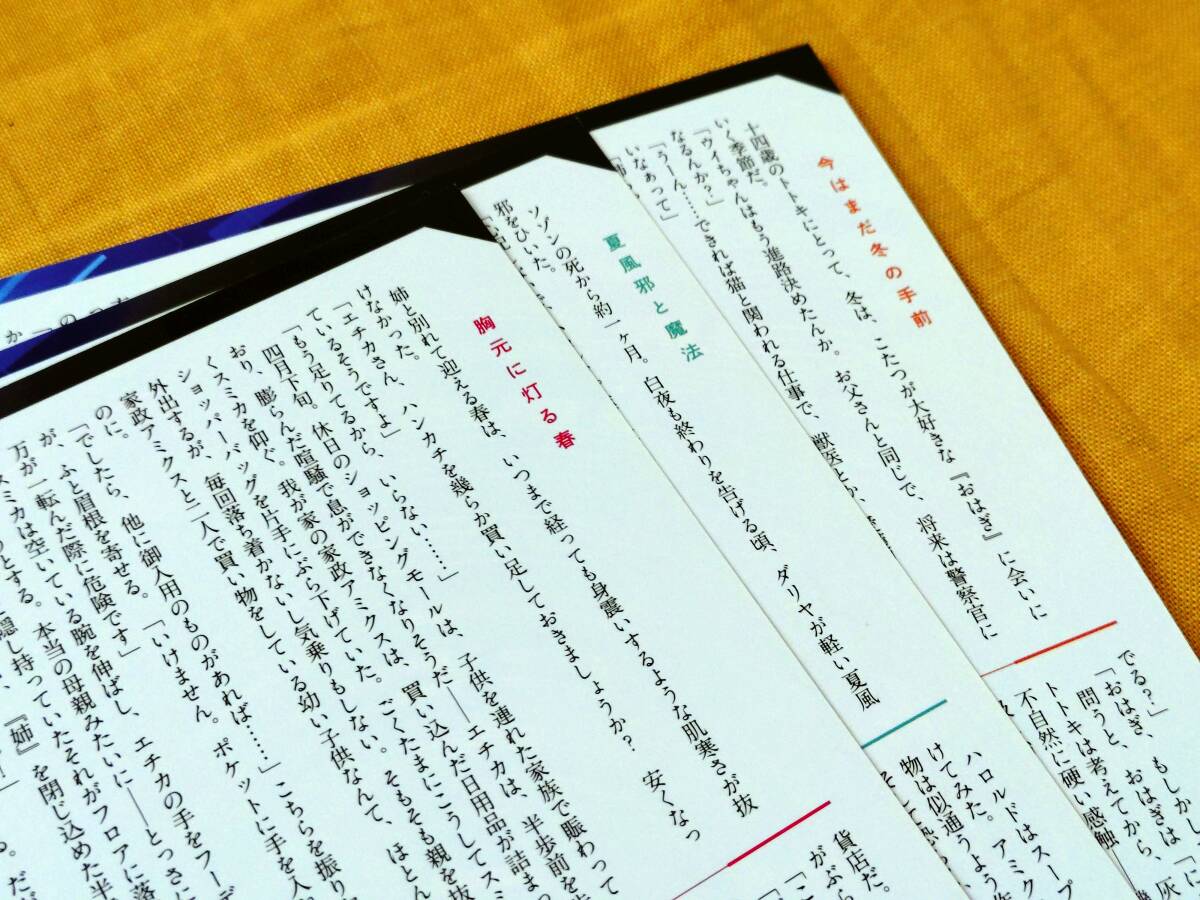 今はまだ冬の手前
十四歳のトトキにとって、冬は、こたつが大好きな『おはぎ』に会いに
いく季節だ。
「ウイちゃんはもう進路決めたんか。お父さんと同じで、将来は警察官に
なるんか?」
「うーん……できれば猫と関われる仕事で、獣医とか、
いなぁって」
でる?」
「おはぎ、もしかし
問うと、おはぎは、「に
トトキは考えてから、『灰
不自然に硬い感触
夏風邪と魔法
ソゾンの死から約一ヶ月。白夜も終わりを告げる頃、ダリヤが軽い夏風
邪をひいた。
ハロルドはスープ
けてみた。アミク
物は似通うよう作
胸元に灯る春
姉と別れて迎える春は、いつまで経っても身震いするような肌寒さが抜
けなかった。
「エチカさん、ハンカチを幾らか買い足しておきましょうか? 安くなっ
ているそうですよ」
「もう足りてるから、いらない……」
四月下旬。休日のショッピングモールは、子供を連れた家族で賑わって
おり、膨らんだ喧騒で息ができなくなりそうだ――エチカは、半歩前を歩
くスミカを仰ぐ。我が家の家政アミクスは、買い込んだ日用品が詰まっ
ショッパーバッグを片手にぶら下げていた。ごくたまにこうしてスミ
外出するが、毎回落ち着かないし気乗りもしない。そもそも親を抜
家政アミクスと二人で買い物をしている幼い子供なんて、ほとん
のに。
「でしたら、他に御入用のものがあれば……」こちらを振り
が、ふと眉根を寄せる。「いけません。ポケットに手を入
万が一転んだ際に危険です」
スミカは空いている腕を伸ばし、エチカの手をフーデ
とする。本当の母親みたいに――とっさに
隠し持っていたそれがフロアに落
『姉』を閉じ込めた半
貨店だ。
がぶら